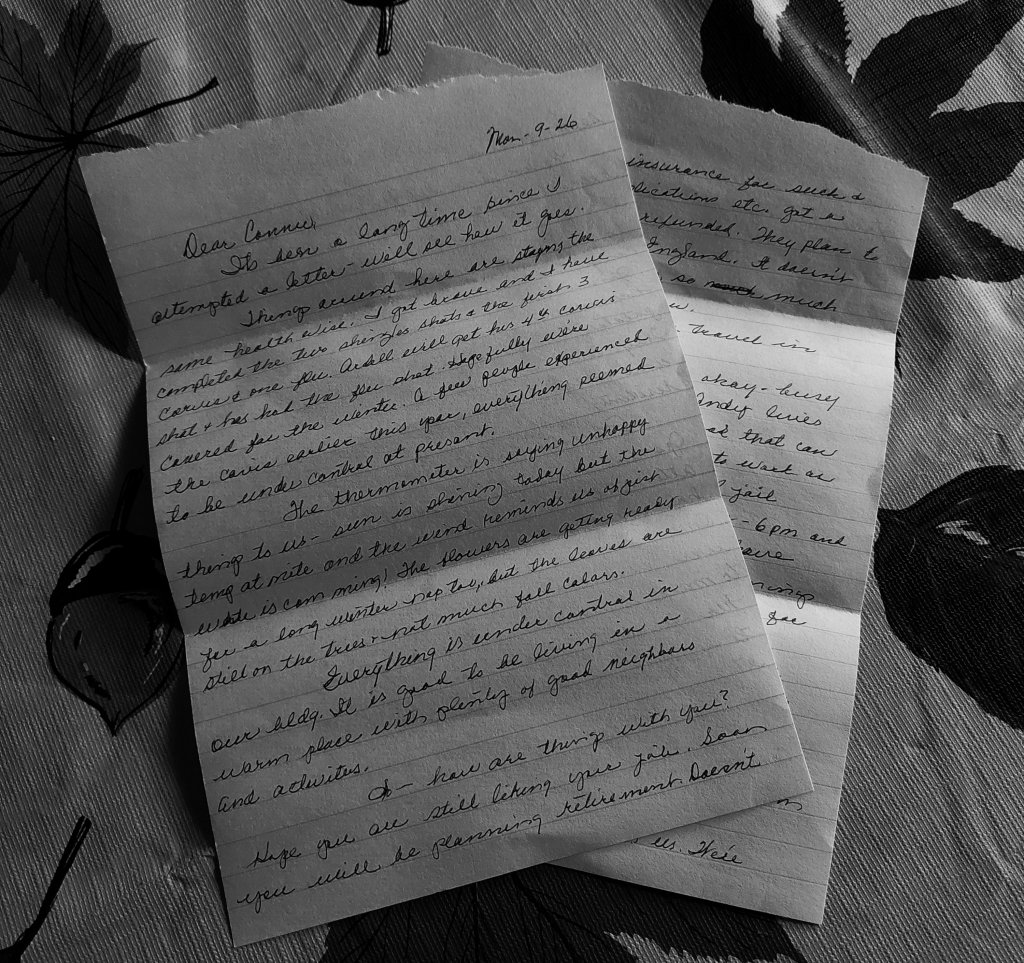 Mon - 9-26
Dear Connie,
It's been a long time since I
attempted a letter - will see how it goes.
Things around here are staying the
same health wise. I got brave and I have
completed the two shingles shots & the first 3
covids & one flu. Ardell will get his 4th covis
shot & has had the flu shot. Hopefully we're
covered for the winter. A few people experienced
the covis earlier this year, everything seemed
to be under control at present.
The thermometer is saying unhappy
things to us - sun is shining today but the
temp at nite and the wind reminds us of gist
is comming! The flowers are getting ready
for a long winter nap too, but the leaves are
still on the trees - not much fall colors.
Everything is under control in
our bldg. It is good to be living in a
warm place with plenty of good neighbors
and activites.
Oh - how are things with you?
Hope you are still liking your job. Soon
you will be planning retirement. Doesn't
insurance for such &
etc. got a
refunded. They plan to
England. It doesn't
so much
travel in
okay - busy
Andy lives
that can
to work as
jail
- 6 pm and
for
us. Their